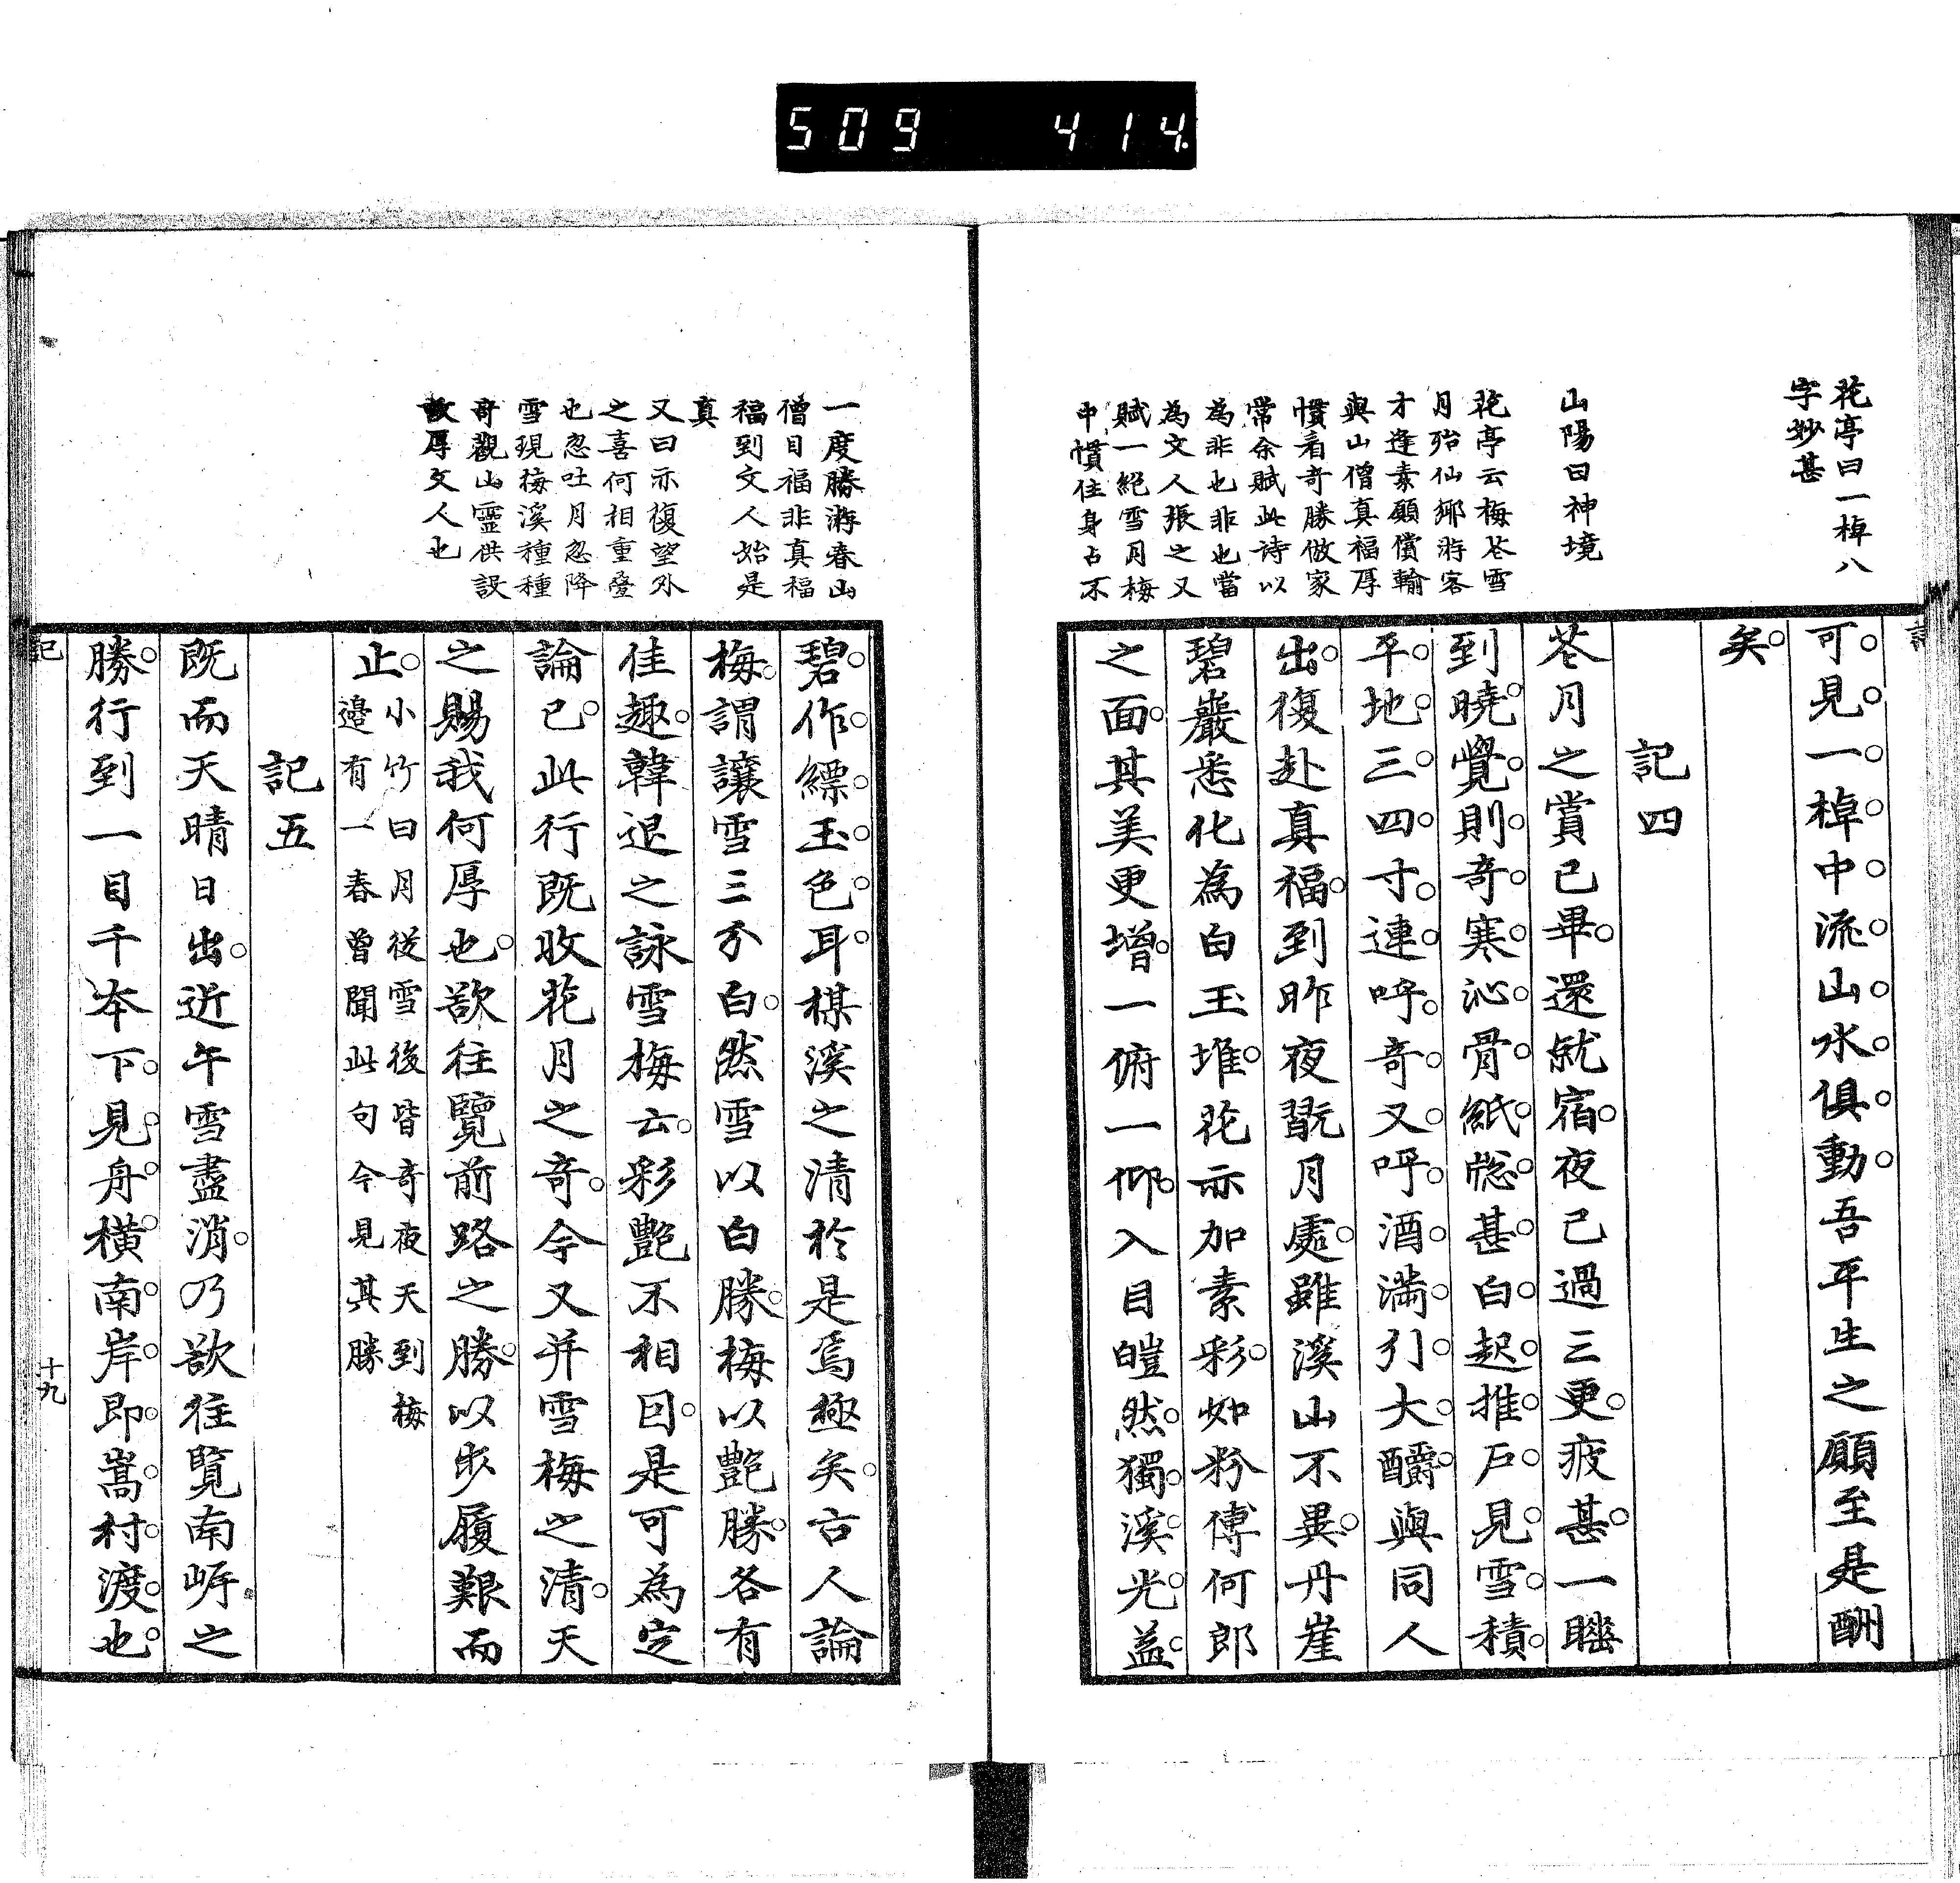 509 414.
花亭曰一棹八
字妙甚
山陽曰神境
花亭云梅花雪
月殆仙鄉游客
才逢素願償輸
與山僧真福厚
慣看奇勝倣家
常余賦此詩以
為非也非也當
為文人張之又
賦一絕雪月梅
中慣住身占不
可見一棹中流山水俱動吾平生之願至是酬
矣
記四
花月之賞已畢還就宿夜已過三更疲甚一瞌
到曉覺則奇寒沁骨紙窓甚白起推戶見雪積
平地三四寸連呼奇又呼酒滿引大釂與同人
出復赴真福到昨夜翫月處雖溪山不異丹崖
碧巖悉化為白玉堆花亦加素彩如粉傅何郎
之面其美更增一俯一仰入目皚然獨溪光益
一度勝游春山
僧目福非真福
福到文人始是
真
又曰亦復望外
之喜何相重疊
也忽吐月忽降
雪現梅溪種種
奇觀山靈供設
故厚文人也
碧作縹玉色耳棋溪之清於是焉極矣古人論
梅謂讓雪三分白然雪以白勝梅以艷勝各有
佳趣韓退之詠雪梅云彩艷不相因是可為定
論已此行既收花月之奇今又并雪梅之清天
之賜我何厚也欲往覽前路之勝以步履艱而
止
小竹曰月從雪後皆奇夜天到梅
邊有一春曾聞此句今見其勝
記五
既而天晴日出近午雪盡消乃欲往覽南崖之
勝行到一目千本下見舟橫南岸即嵩村渡也
記
十九